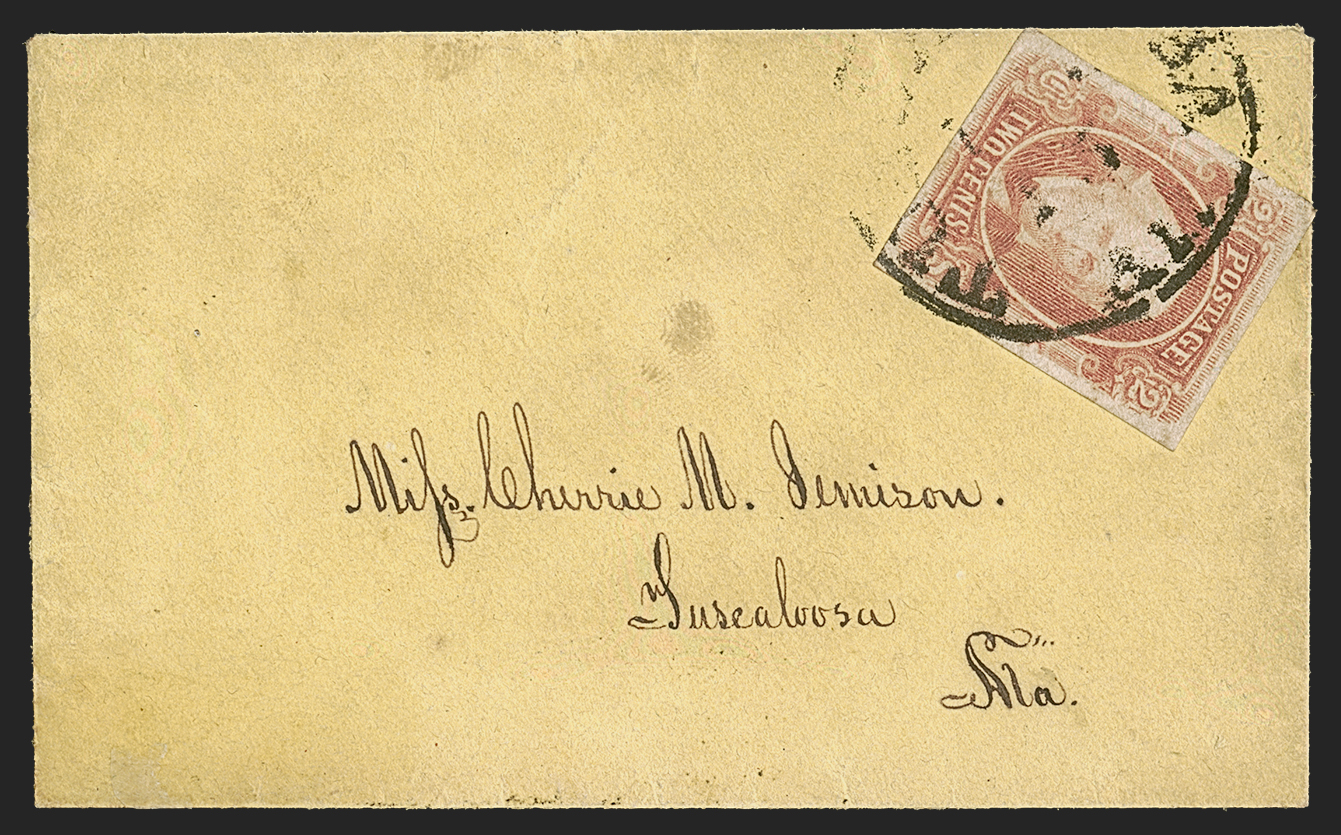 TWO CENTS
POSTAGE
2
2
Miss. Cherrie M. Jemison.
Tuscaloosa
Ala.